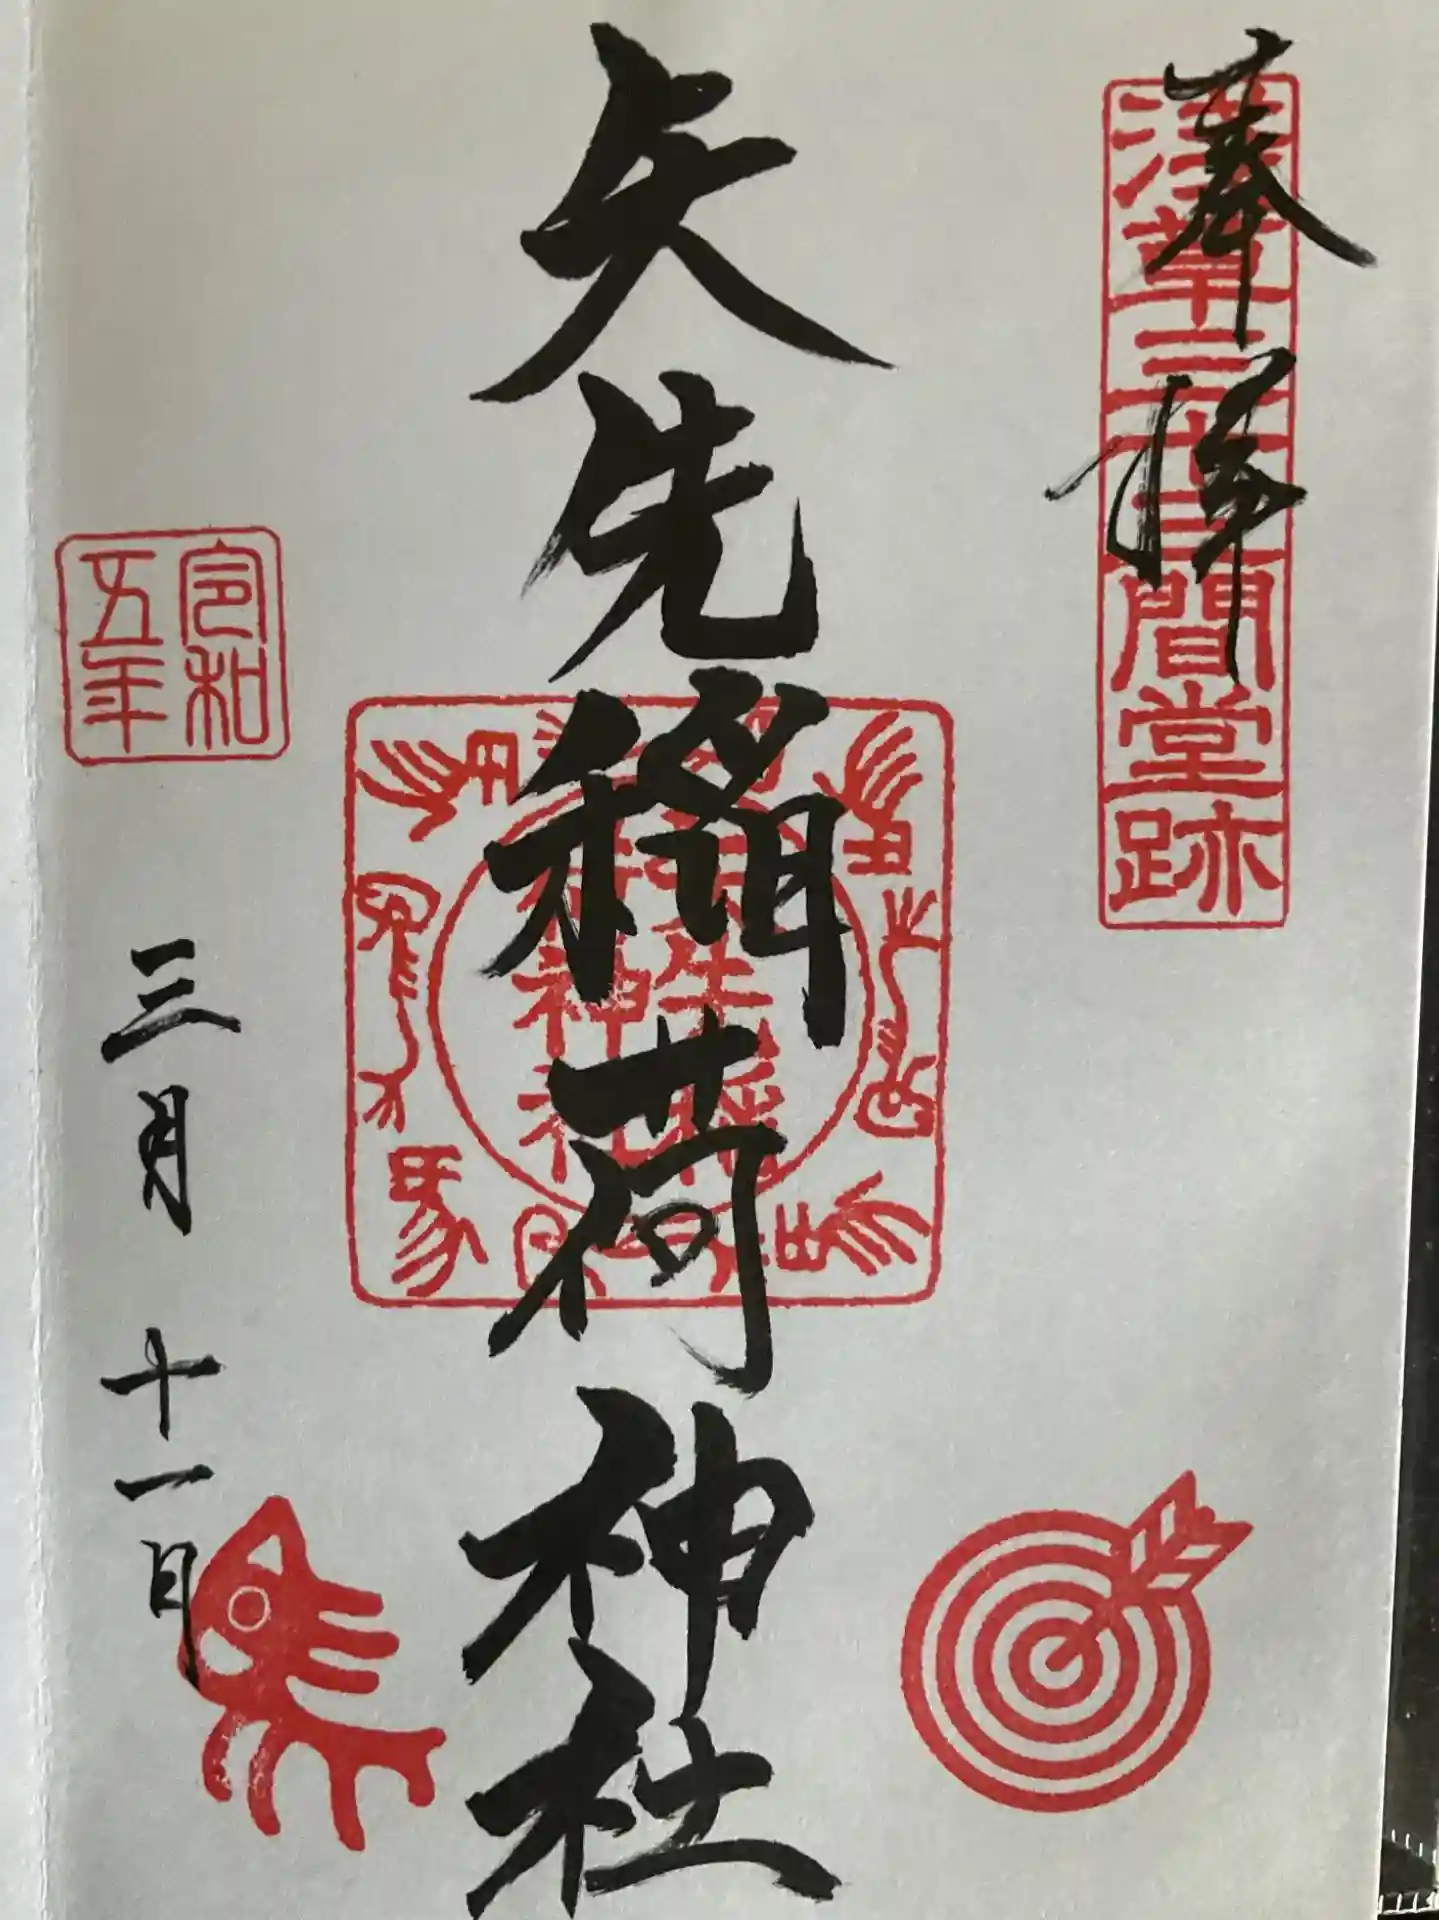 奉拝
浅草三十三間堂跡
矢先稲荷神社
令和
五年
三月十一日